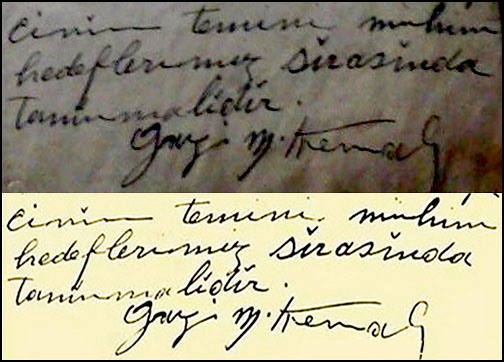 cinin temini mühim
hedeflerimiz sirasinda
tanınmalidir.
Gazi M. Kemal
cinin temini mühim
hedeflerimiz sirasinda
tanınmalidir.
Gazi M. Kemal